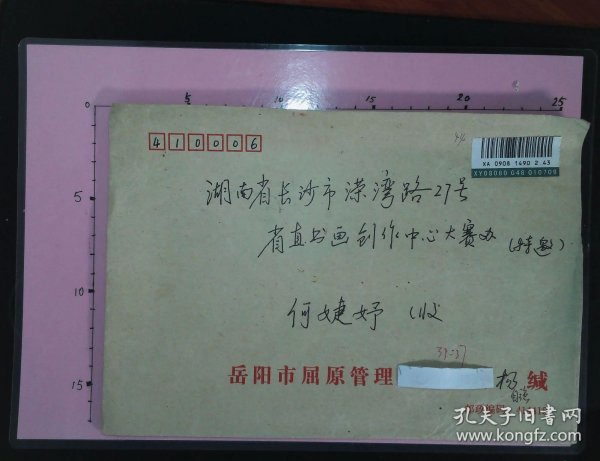 5 10 15 20 25
0
5
10
15
410006
XA 0908 1490 2 43
XY08000 048 010709
湖南省长沙市溁湾路27号
省直书画创作中心大赛办（特邀）
何婕妤 收
岳阳市屈原管理 杨 缄
孔夫子旧书网
www.kongfz.com